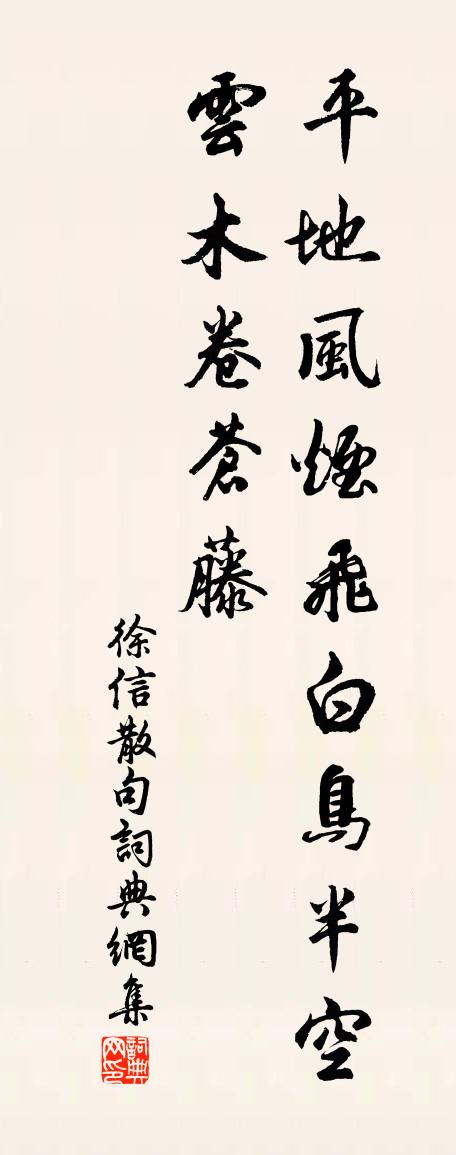 平地風煙飛白鳥半空
雲木卷蒼藤
徐信散句詞典網集
詞典网印